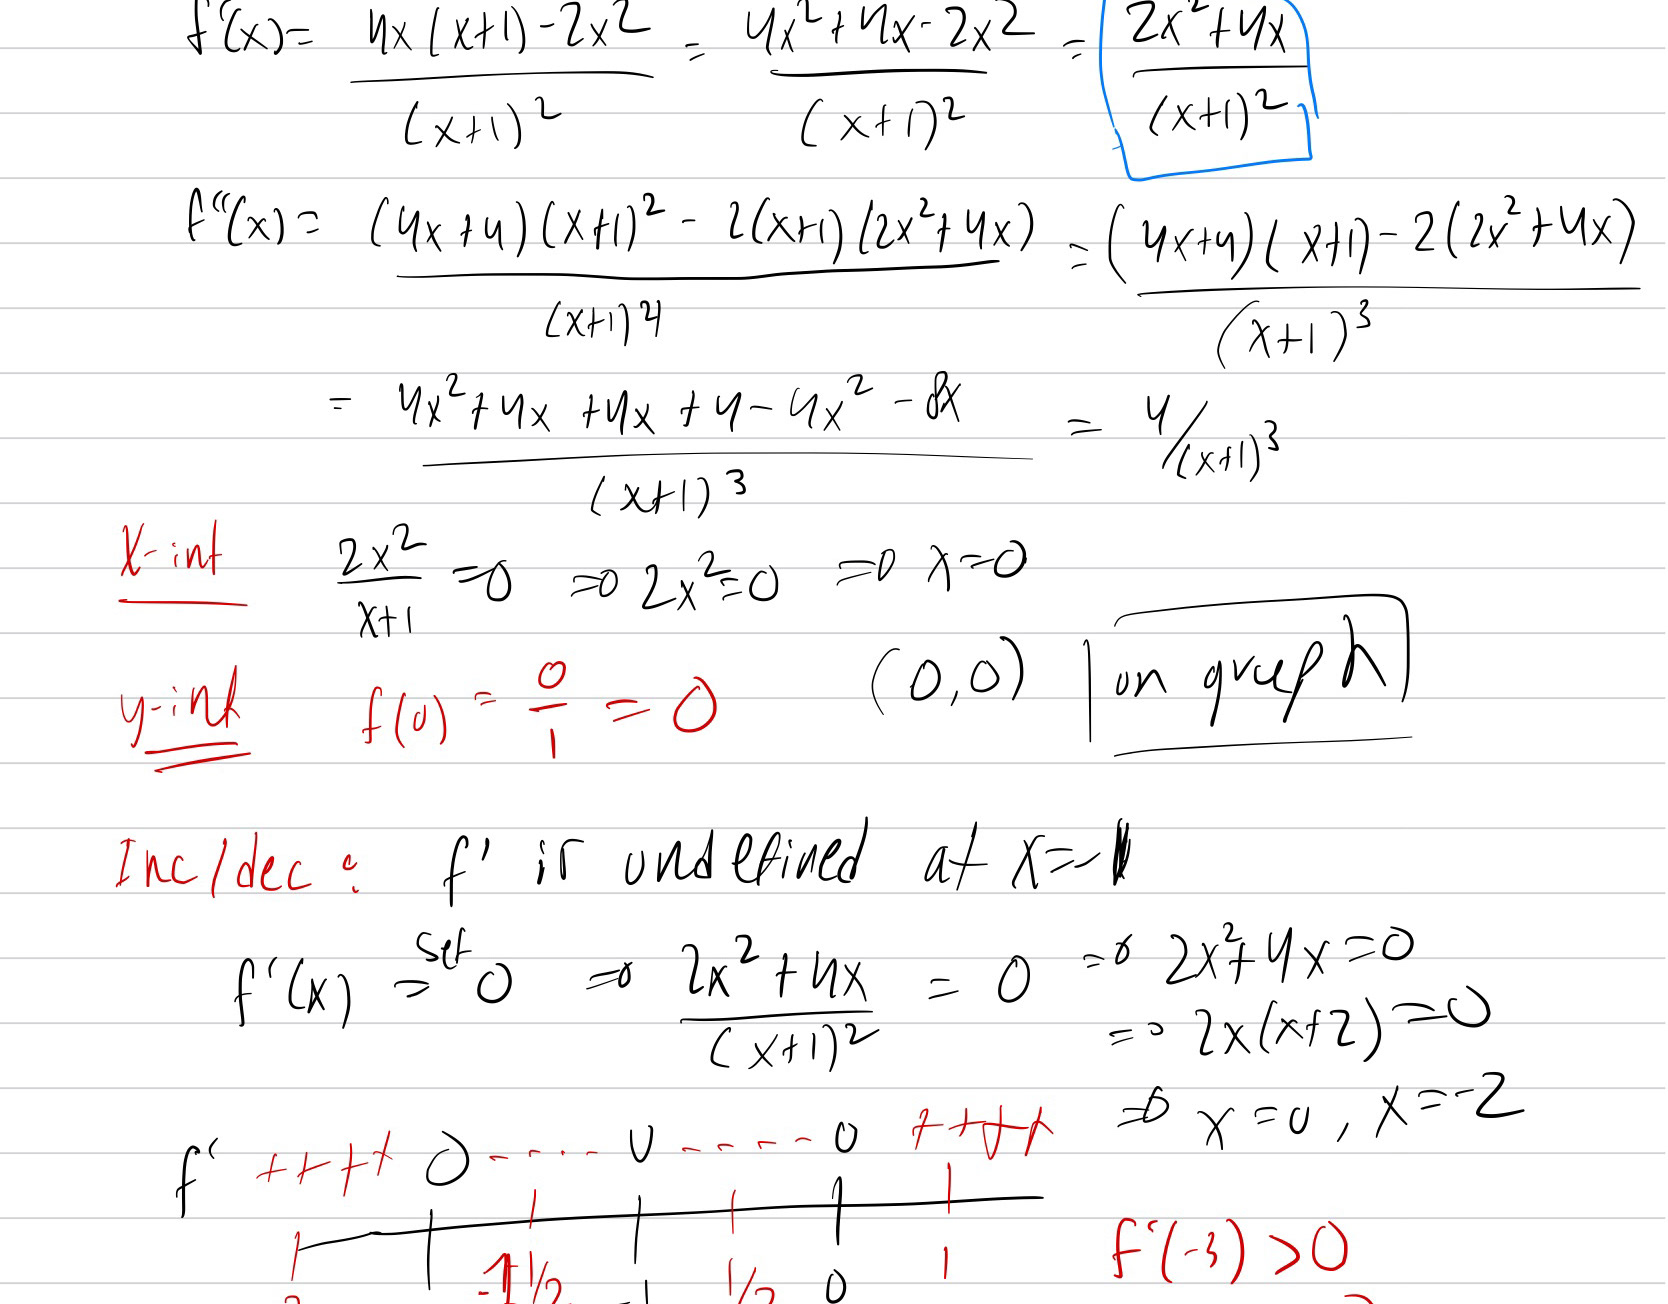 f'(x) = 4x(x+1) - 2x² / (x+1)² = 4x² + 4x - 2x² / (x+1)² = 2x² + 4x / (x+1)²
f''(x) = (4x+4)(x+1)² - 2(x+1)(2x²+4x) / (x+1)⁴ = (4x+4)(x+1) - 2(2x²+4x) / (x+1)³
= 4x² + 4x + 4x + 4 - 4x² - 8x / (x+1)³ = 4/(x+1)³
x-int 2x² / x+1 = 0 ⇒ 2x² = 0 ⇒ x = 0
y-int f(0) = 0/1 = 0 (0,0) on graph
Inc/dec: f' is undefined at x = -1
f'(x) set = 0 ⇒ 2x² + 4x / (x+1)² = 0 ⇒ 2x² + 4x = 0
⇒ 2x(x+2) = 0
⇒ x = 0, x = -2
f' ++++ 0 ----- U ----- 0 ++++
f'(-3) > 0
-1 1/2 -1 1/2 0 1